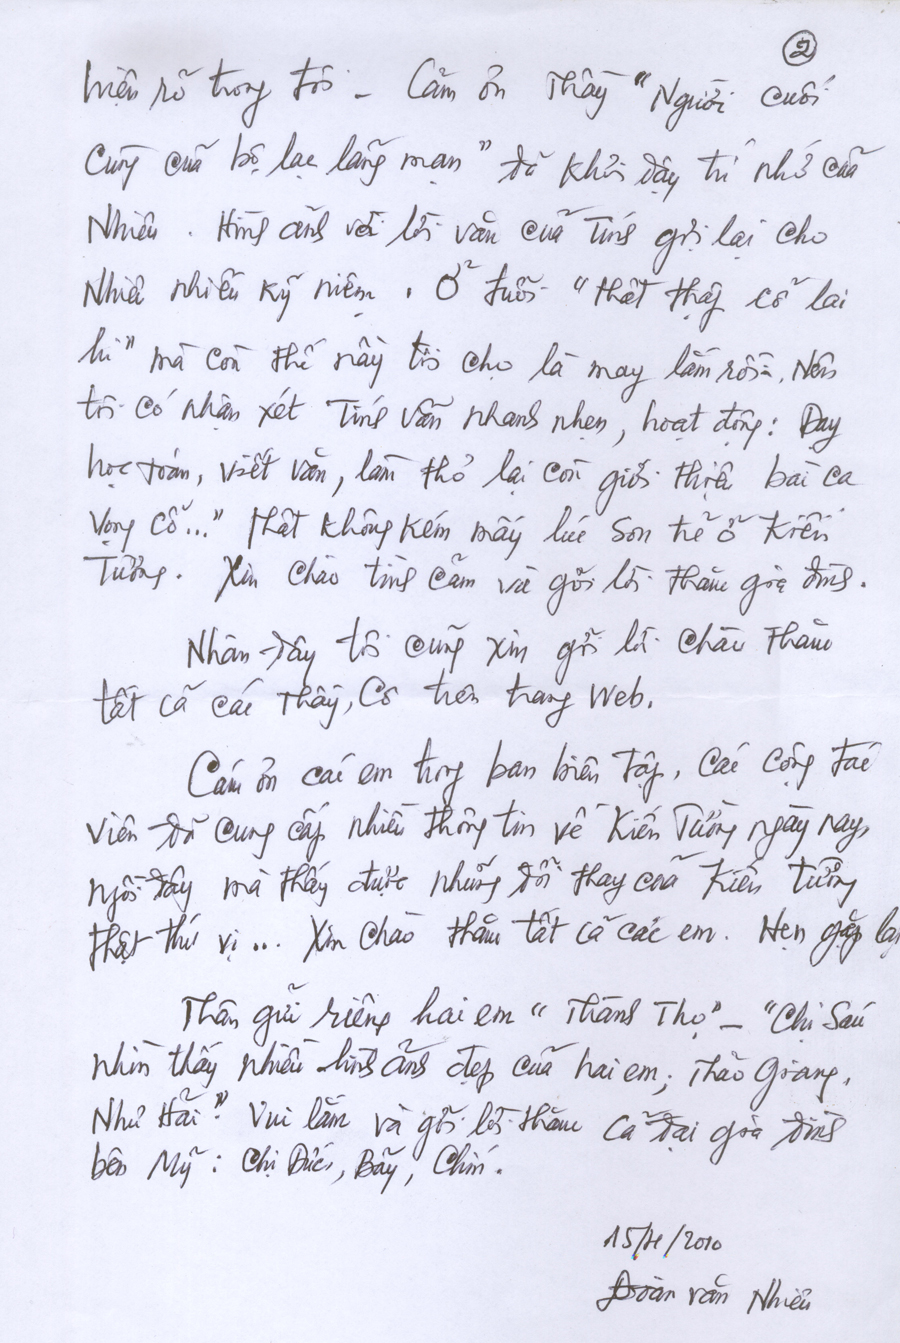 2
hiện rõ trong tôi - Cảm ơn Thầy "Người cuối
Cùng của bộ lạc lãng mạn" đã khơi dậy trí nhớ của
Nhiêu. Hình ảnh với lời văn của Tính gợi lại cho
Nhiêu nhiều kỹ niệm. Ở tuổi "thất thập cổ lai
hi" mà còn thế nầy tôi cho là may lắm rồi. Nên
tôi có nhận xét Tính vẫn nhanh nhẹn, hoạt động: Dạy
học toán, viết văn, làm thơ lại còn giới thiệu bài ca
Vọng Cổ..." thật không kém mấy lúc son trẻ ở Kiến
Tường. Xin chào tình cảm và gởi lời thăm gia đình.
Nhân đây tôi cũng xin gởi lời chào thăm
tất cả các Thầy, Cô trên trang Web.
Cám ơn các em trong ban biên tập, các cộng tác
viên đã cung cấp nhiều thông tin về Kiến Tường ngày nay,
ngồi đây mà thấy được những đổi thay của Kiến Tường
thật thú vị... Xin chào thăm tất cả các em. Hẹn gặp lại
Thân gửi riêng hai em "Thành Thọ" - "Chị Sáu
nhìn thấy nhiều hình ảnh đẹp của hai em; Thảo Giang,
Như Hải" Vui lắm và gởi lời thăm cả đại gia đình
bên Mỹ: Chị Đức, Bảy, Chín.
2010
Đoàn văn Nhiêu